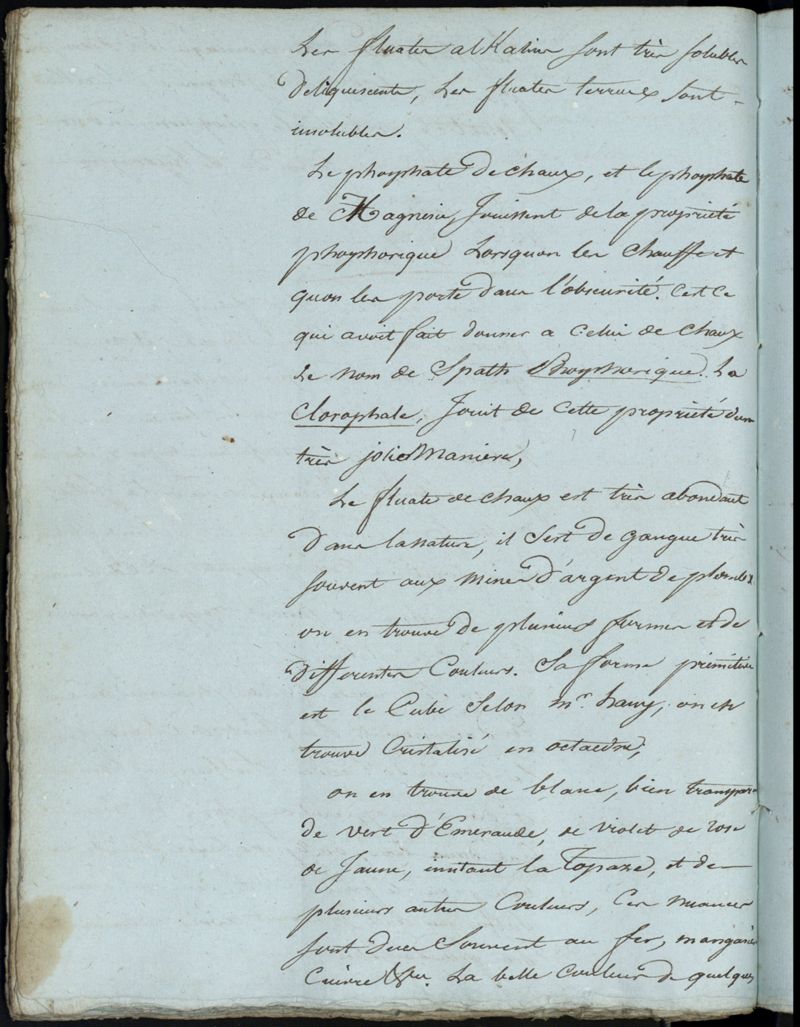 Les fluates alKalins sont très solubles
deliquiscents, Les fluates terreux sont
insolubles.
Le phosphate de chaux, et le phosphate
de Magnesie, Jouissent de la propriété
phosphorique Lorsquon les chauffe et
quon les porte dans l'obscurité. C'est ce
qui avoit fait donner a celui de chaux
le nom de Spath Phosphorique. La
Clorophale, Jouit de cette propriété d'une
très jolie Maniere,
Le fluate de chaux est très abondant
dans la nature, il sert de gangue très
souvent aux mines d'argent de plomb &
on en trouve de plusieurs formes et de
differentes Couleurs. Sa forme primitive
est le Cube Selon mr. hauy, on en
trouve Cristalisé en octaedre,
on en trouve de blanc, bien transpar
de vert d'Emeraude, de violet de rose
de Jaune, imitant la Topaze, et de
plusieurs autres Couleurs, Ces nuances
sont dues Souvent au fer, manganèse
Cuivre &a. La belle Couleur de quelques